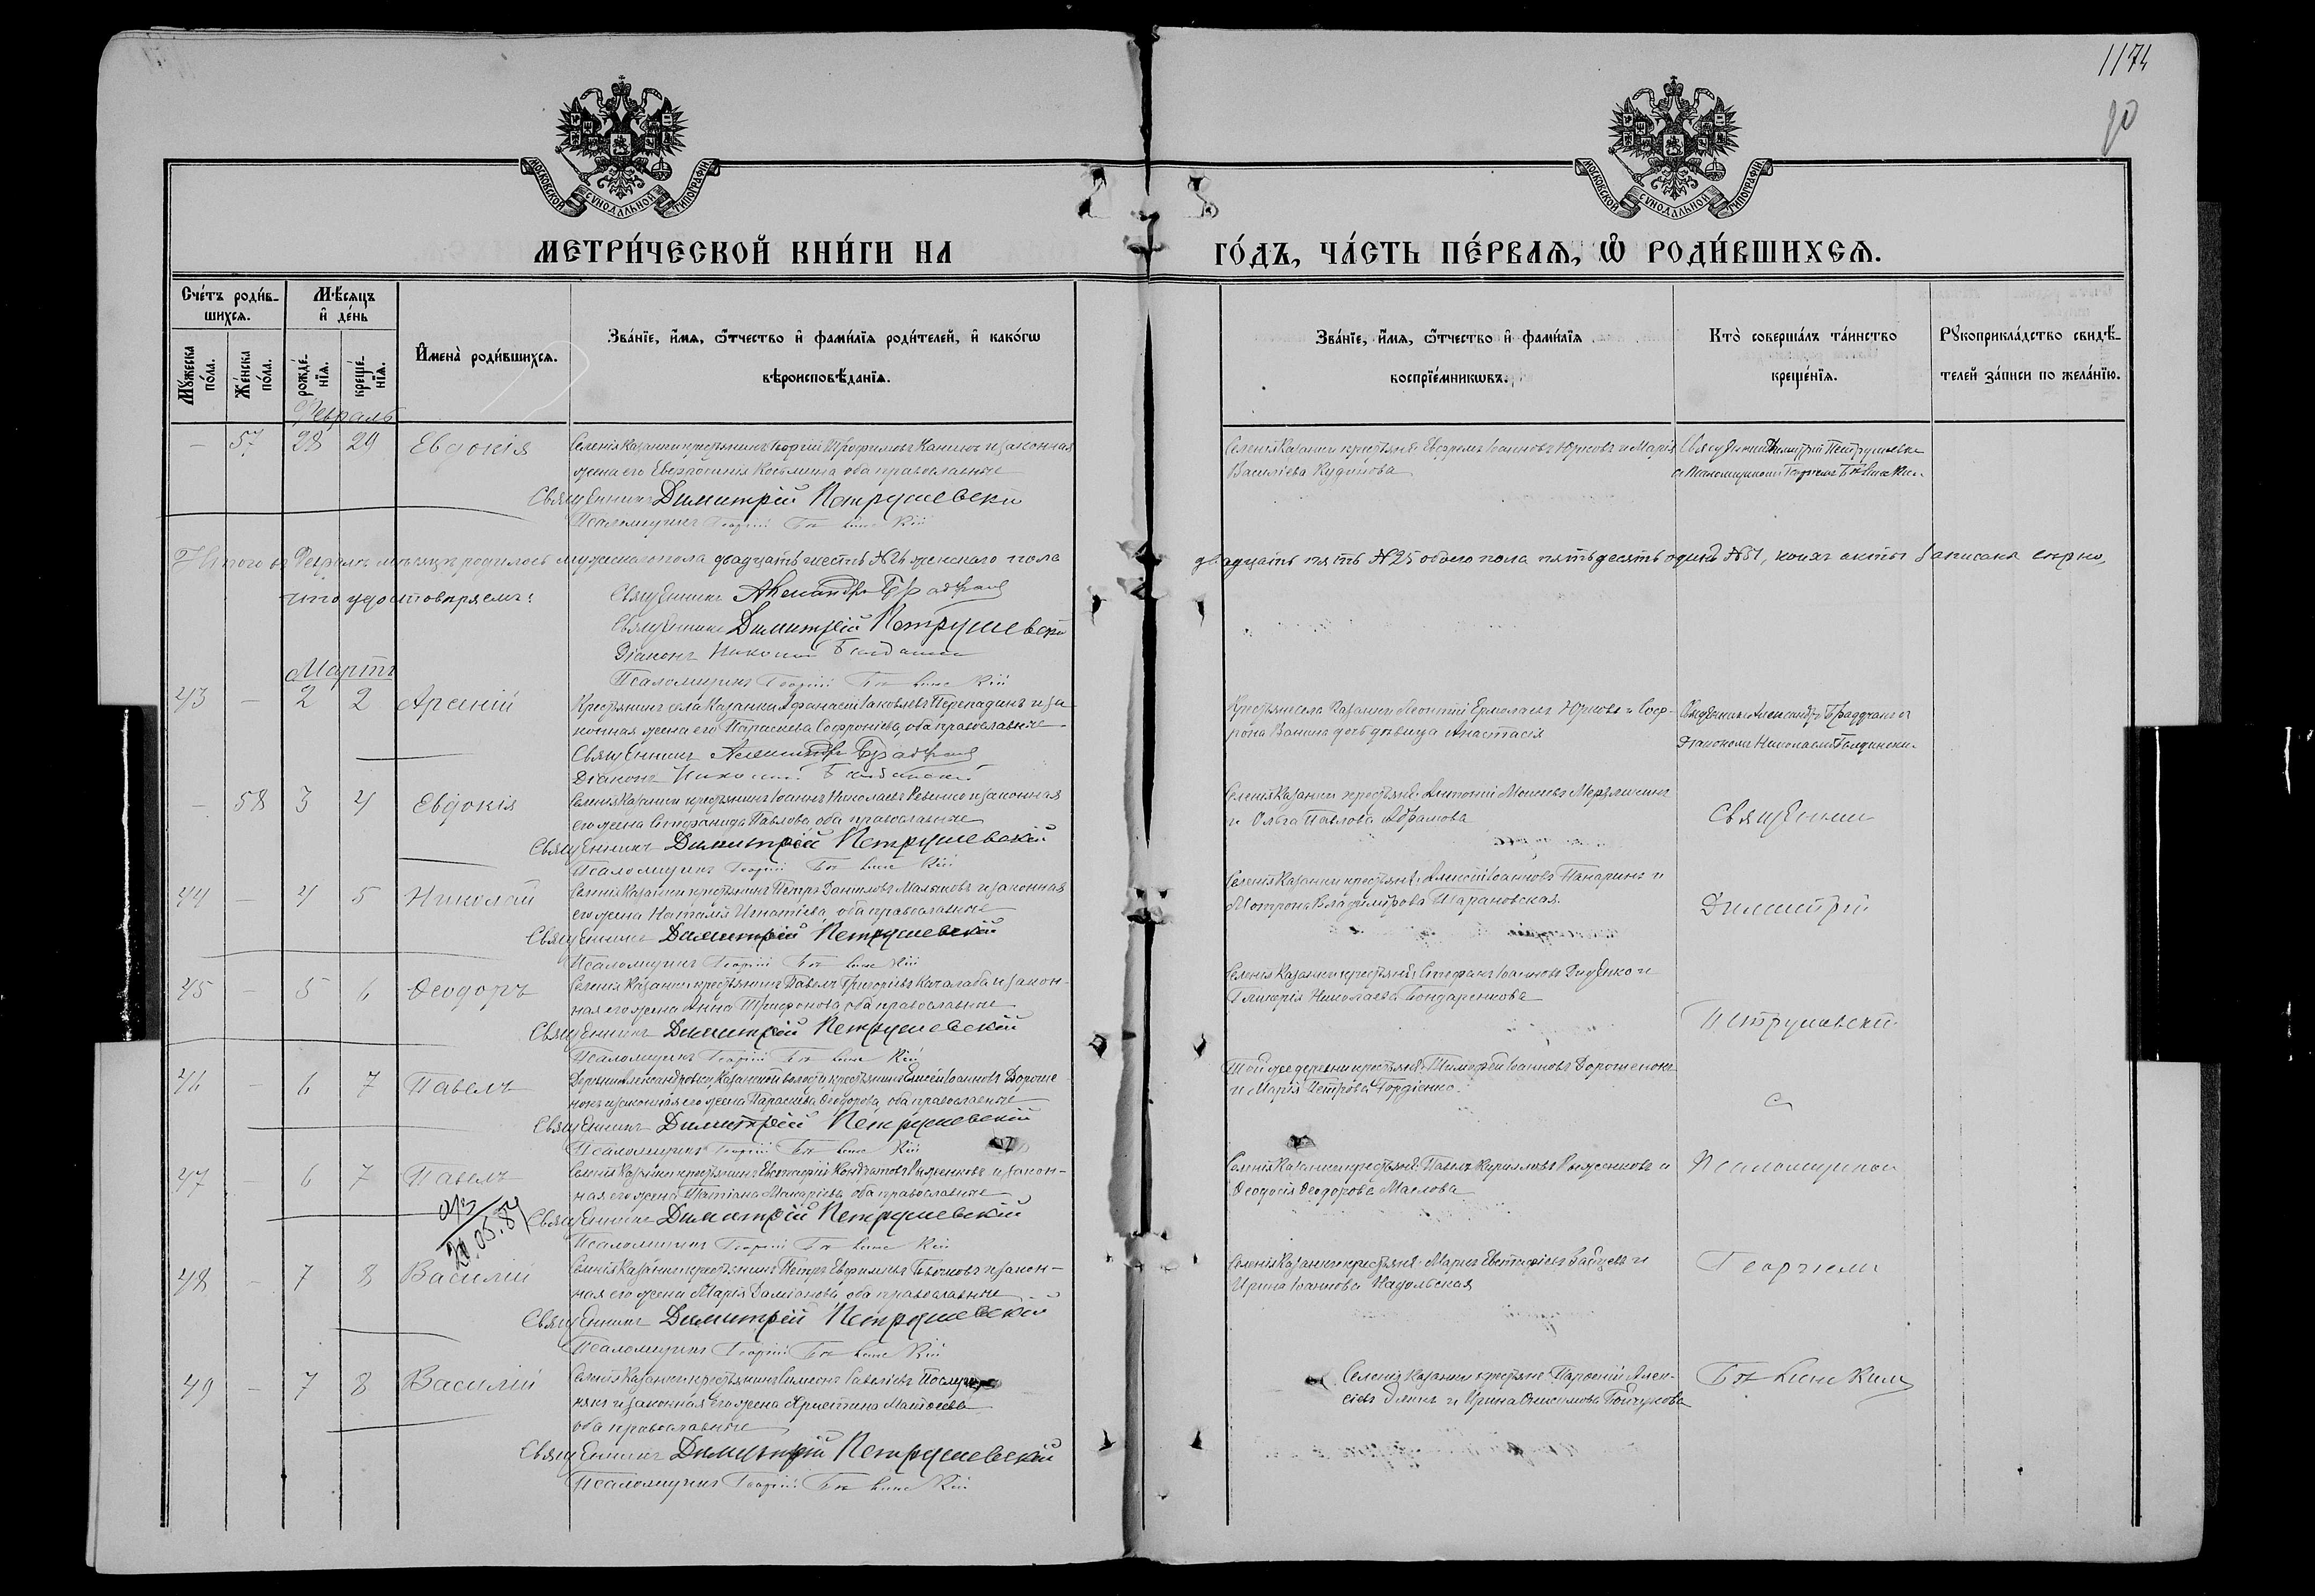 1174
90
МОСКОВСКОЙ СѴНОДАЛЬНОЙ ТИПОГРАФІИ
МОСКОВСКОЙ СѴНОДАЛЬНОЙ ТИПОГРАФІИ
МЕТРИ́ЧЕСКОЙ КНИ́ГИ НА ГО́ДЪ, ЧА́СТЬ ПЕ́РВАѦ, Ѡ҆ РОДИ́ВШИХСѦ.
Сче́тъ роди́в-
шихсѧ.
Мꙋ́жеска по́ла.
Же́нска по́ла.
Мѣ́сѧцъ и҆ де́нь
рожде́-нїѧ.
креще́-нїѧ.
И҆мена̀ роди́вшихсѧ.
Зва́нїе, и҆́мѧ, ѻ҆́тчество и҆ фами́лїѧ роди́телей, и҆ како́гѡ
вѣроисповѣ́данїѧ.
Зва́нїе, и҆́мѧ, ѻ҆́тчество и҆ фами́лїѧ
воспрїе́мникѡвъ.
Кто̀ соверша́лъ та́инство
креще́нїѧ.
Рꙋкоприкла́дство свидѣ́-
телей за́писи по жела́нїю.
Февраль
— 57 28 29 Евдокія
Селенія Казанки крестьянинъ Георгій Трофимовъ и законная
жена его Евфросинія Космина оба православные
Священникъ Димитрій Петрушевскій
Псаломщикъ Георгій
Селенія Казанки крестьяне: Ефремъ Іоанновъ Юрковъ и Марія
Васильева Кудинова
Священникъ Димитрій Петрушевскій
съ Псаломщикомъ Георгіемъ
Итого въ Февралѣ мѣсяцѣ родилось мужескаго пола двадцать шесть №26 женскаго пола двадцать пять №25 обоего пола пятьдесятъ одинъ №51, коихъ акты записаны вѣрно,
что удостовѣряемъ:
Священникъ Александръ
Священникъ Димитрій Петрушевскій
Діаконъ Николай
Псаломщикъ Георгій
Мартъ
43 — 2 2 Арсеній
Крестьянинъ села Казанки Афанасій Іаковлевъ Перепадинъ и за-
конная жена его Параскева Софроніева, оба православные
Священникъ Александръ
Діаконъ Николай
Крестьяне села Казанки Леонтій Ермолаевъ Юрковъ и Соф-
рона Ванина дочь дѣвица Анастасія
Священникъ Александръ съ
Діакономъ Николаемъ
— 58 3 4 Евдокія
Селенія Казанки крестьянинъ Іоаннъ Николаевъ Ревенко и законная
его жена Стефанида Павлова оба православные
Священникъ Димитрій Петрушевскій
Псаломщикъ Георгій
Селенія Казанки крестьяне: Антоній Моисеевъ
и Ольга Павлова Абрамова
Священникъ
44 — 4 5 Николай
Селенія Казанки крестьянинъ Петръ Даниловъ Малыковъ и законная
его жена Наталія Игнатіева, оба православные
Священникъ Димитрій Петрушевскій
Псаломщикъ Георгій
Селенія Казанки крестьяне: Алексій Іоанновъ Панаринъ и
Матрона Владимірова Тарановская
Димитрій
45 — 5 6 Ѳеодоръ
Селенія Казанки крестьянинъ Павелъ Григоріевъ Качалаба и закон-
ная его жена Анна Трифонова, оба православные
Священникъ Димитрій Петрушевскій
Псаломщикъ Георгій
Селенія Казанки крестьяне: Стефанъ Іоанновъ Диденко и
Гликерія Николаева Бондаренкова
Петрушевскій
46 — 6 7 Павелъ
Деревни Александровки, Казанской волости, крестьянинъ Елисей Іоанновъ Дороше-
нокъ и законная его жена Параскева Ѳеодорова, оба православные
Священникъ Димитрій Петрушевскій
Псаломщикъ Георгій
Той же деревни крестьяне: Тимофей Іоанновъ Дорошенокъ
и Марія Петрова Гордіенко
с
47 — 6 7 Павелъ
Селенія Казанки крестьянинъ Евстафій Кондратовъ Рыженковъ и закон-
ная его жена Татіана Макаріева оба православные
Священникъ Димитрій Петрушевскій
Псаломщикъ Георгій
Селенія Казанки крестьяне: Павелъ Кирилловъ Рыженковъ и
Ѳеодосія Ѳеодорова Маслова
Псаломщикомъ
48 — 7 8 Василій
Селенія Казанки крестьянинъ Петръ Евфиміевъ Бычковъ и закон-
ная его жена Марія Даміанова оба православные
Священникъ Димитрій Петрушевскій
Псаломщикъ Георгій
Селенія Казанки крестьяне: Маркъ Евстафіевъ Зайцевъ и
Ирина Іоаннова Надольская
Георгіемъ
49 — 7 8 Василій
Селенія Казанки крестьянинъ Симеонъ Савельевъ
и законная его жена Христина Матѳеева
оба православные
Священникъ Димитрій Петрушевскій
Псаломщикъ Георгій
Селенія Казанки крестьяне Парѳеній Алек-
сіевъ и Ирина Онисимова